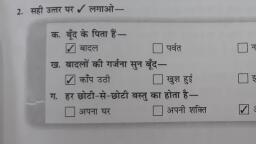 2. सही उत्तर पर ✓ लगाओ—
क. बूँद के पिता हैं—
☑ बादल ☐ पर्वत ☐
ख. बादलों की गर्जना सुन बूँद—
☑ काँप उठी ☐ खुश हुई ☐
ग. हर छोटी-से-छोटी वस्तु का होता है—
☐ अपना घर ☐ अपनी शक्ति ☑